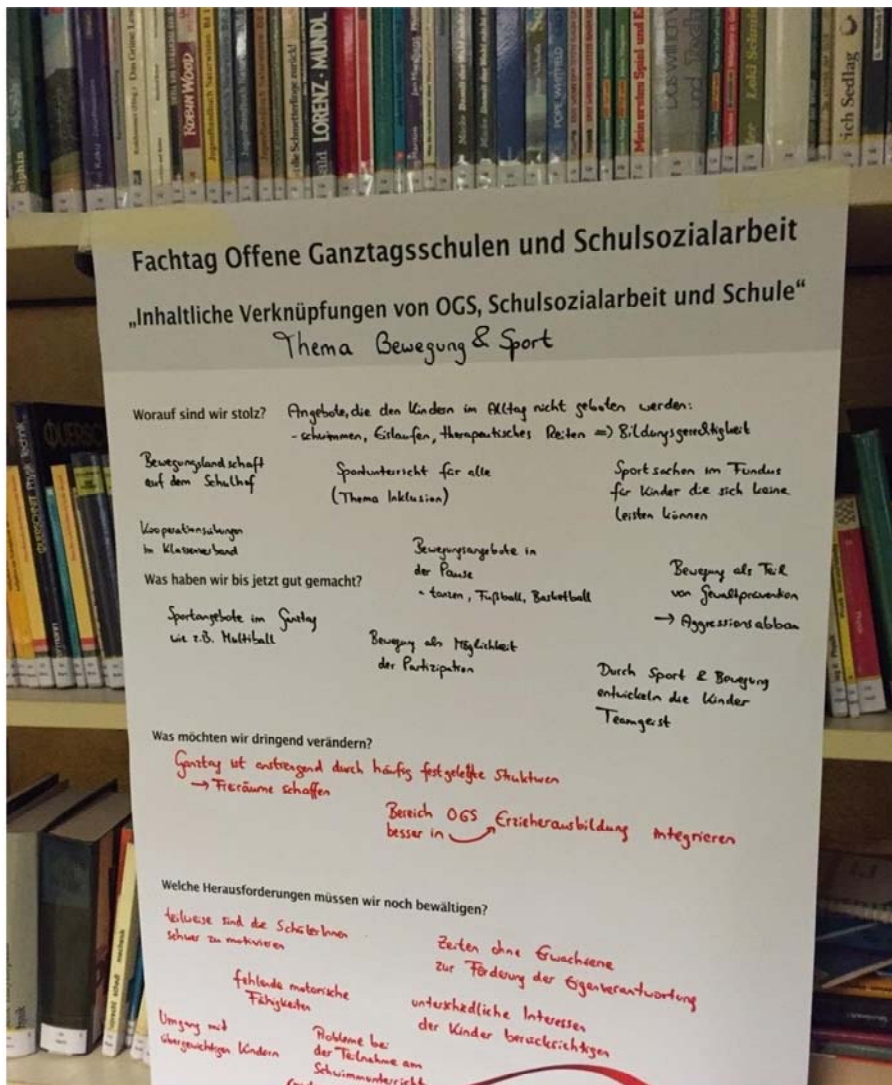 ROBIN WOOD
LORENZ · MUNDL
Mein erstes Spiel und
Loki Schmidt
ich Sedlag
Fachtag Offene Ganztagsschulen und Schulsozialarbeit
„Inhaltliche Verknüpfungen von OGS, Schulsozialarbeit und Schule“
Thema Bewegung & Sport
Worauf sind wir stolz?
Angebote, die den Kindern im Alltag nicht geboten werden:
- schwimmen, Eislaufen, therapeutisches Reiten => Bildungsgerechtigkeit
Bewegungslandschaft
auf dem Schulhof
Sportunterricht für alle
(Thema Inklusion)
Sportsachen im Fundus
für Kinder die sich keine
leisten können
Kooperationsübungen
im Klassenverband
Bewegungsangebote in
der Pause
- tanzen, Fußball, Basketball
Bewegung als Teil
von Gewaltprävention
→ Aggressionsabbau
Was haben wir bis jetzt gut gemacht?
Sportangebote im Ganztag
wie z.B. Multiball
Bewegung als Möglichkeit
der Partizipation
Durch Sport & Bewegung
entwickeln die Kinder
Teamgeist
Was möchten wir dringend verändern?
Ganztag ist anstrengend durch häufig festgelegte Strukturen
→ Freiräume schaffen
Bereich OGS Erzieherausbildung integrieren
besser in
Welche Herausforderungen müssen wir noch bewältigen?
teilweise sind die SchülerInnen
schwer zu motivieren
Zeiten ohne Erwachsene
zur Förderung der Eigenverantwortung
fehlende motorische
Fähigkeiten
unterschiedliche Interessen
der Kinder berücksichtigen
Umgang mit
übergewichtigen Kindern
Probleme bei
der Teilnahme am
Schwimmunterricht